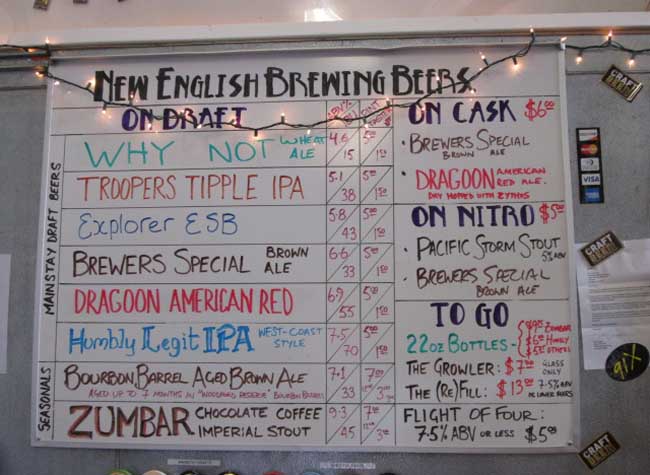 NEW ENGLISH BREWING BEERS
ON DRAFT
ABV%
MAINSTAY DRAFT BEERS
WHY NOT WHEAT ALE 4.6 15 5.00 1.50
TROOPERS TIPPLE IPA 5.1 38 5.00 1.50
Explorer ESB 5.8 43 5.00 1.50
BREWERS SPECIAL BROWN ALE 6.6 33 5.00 1.50
DRAGOON AMERICAN RED 6.9 55 5.00 1.50
Humbly Legit IPA WEST-COAST STYLE 7.5 70 5.00 1.50
SEASONALS
BOURBON BARREL AGED BROWN ALE 7.1 33
AGED UP TO 7 MONTHS IN "WOODFORD RESERVE" BOURBON BARRELS
ZUMBAR CHOCOLATE COFFEE
IMPERIAL STOUT 9.3 45
ON CASK $6.00
• BREWERS SPECIAL
BROWN ALE
• DRAGOON AMERICAN RED ALE.
DRY HOPPED WITH ZYTHOS
ON NITRO $5.00
• PACIFIC STORM STOUT
5% ABV
• BREWERS SPECIAL
BROWN ALE
TO GO
22oz BOTTLES - ZUMBAR
HUMBLY
OTHERS
THE GROWLER: $7.00 GLASS ONLY
THE (RE)FILL: $13.00 7.5% ABV OR LOWER BEERS
FLIGHT OF FOUR:
7.5% ABV OR LESS $5.00
VISA
CRAFT
CRAFT
CRAFT
91X